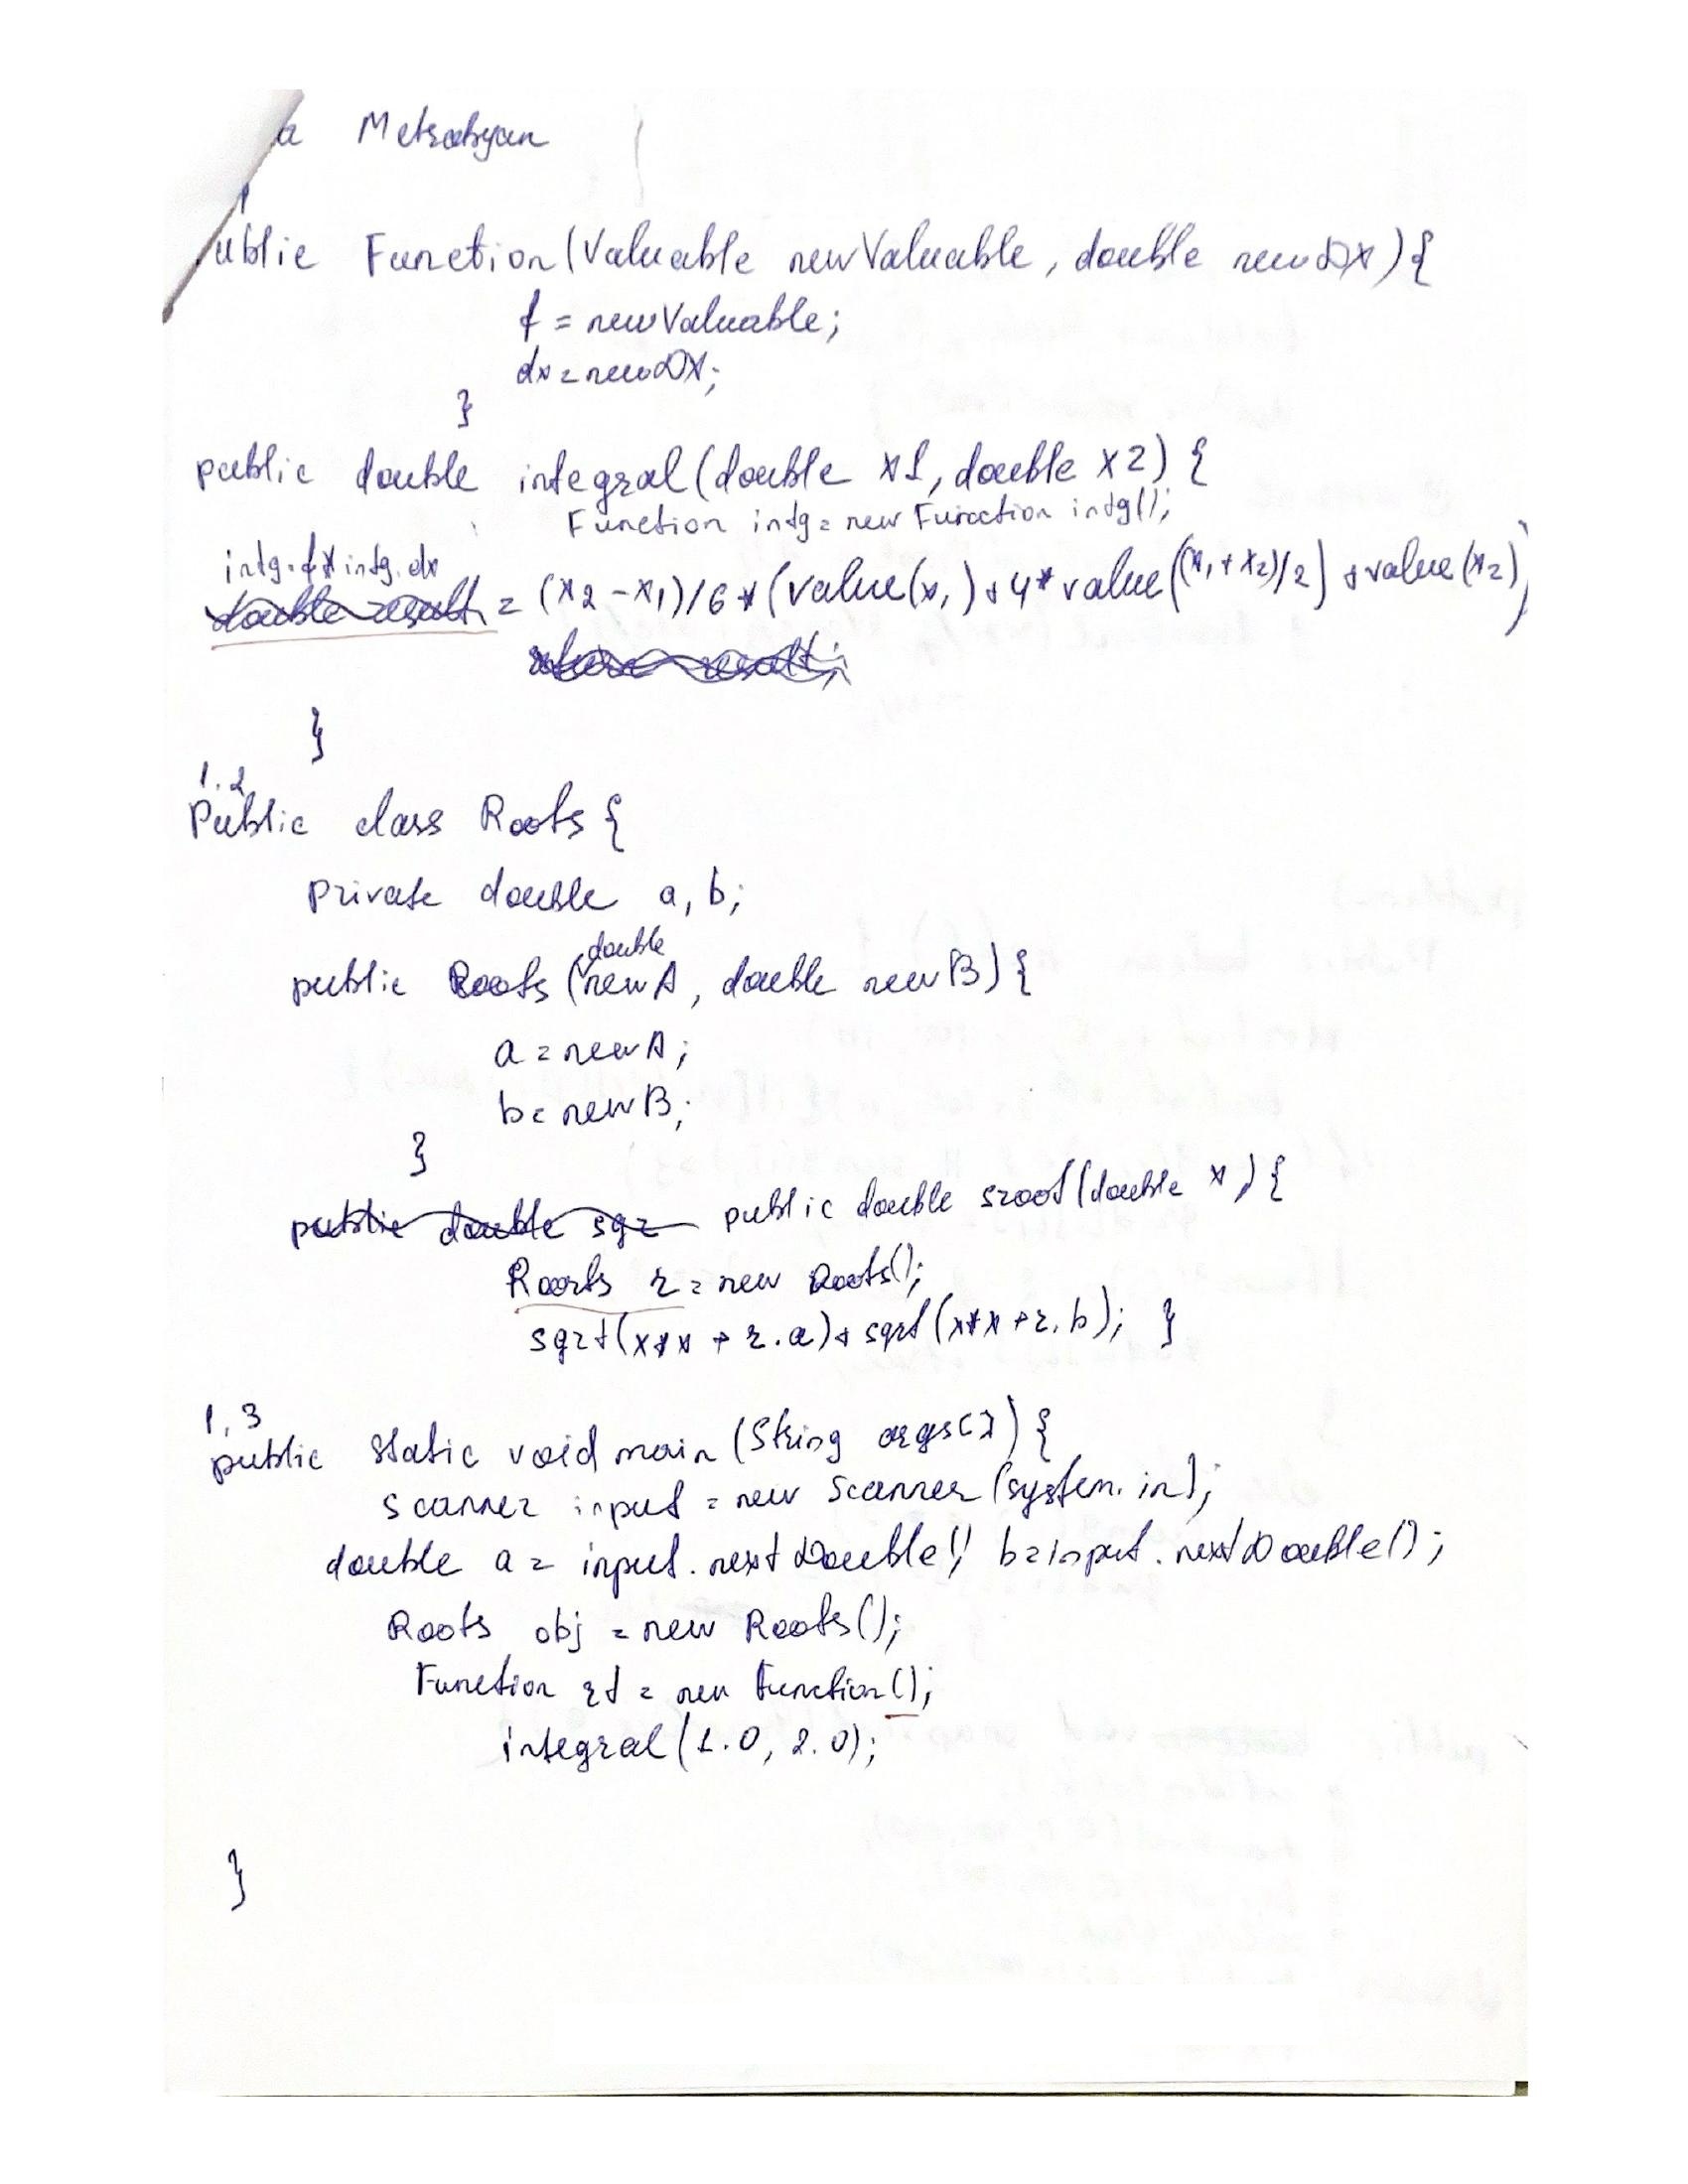 a Metrabyan
public Function(Valuable newValuable, double newDX){
f = newValuable;
dx = newDX;
}
public double integral(double x1, double x2) {
Function intg = new Function intg();
intg.f * intg.dx
double result = (x2 - x1)/6 * (value(x1) + 4* value((x1 + x2)/2) + value(x2)
return result;
}
1.2
Public class Roots {
private double a, b;
double
public Roots (newA, double newB) {
a = newA;
b = newB;
}
public double sqr public double sroot(double x) {
Roots r = new Roots();
sqrt(x*x + r.a) + sqrt(x*x + r.b); }
1.3
public static void main (String args[]) {
Scanner input = new Scanner (system.in);
double a = input.nextDouble(), b = input.nextDouble();
Roots obj = new Roots();
Function rt = new Function();
integral(1.0, 2.0);
}